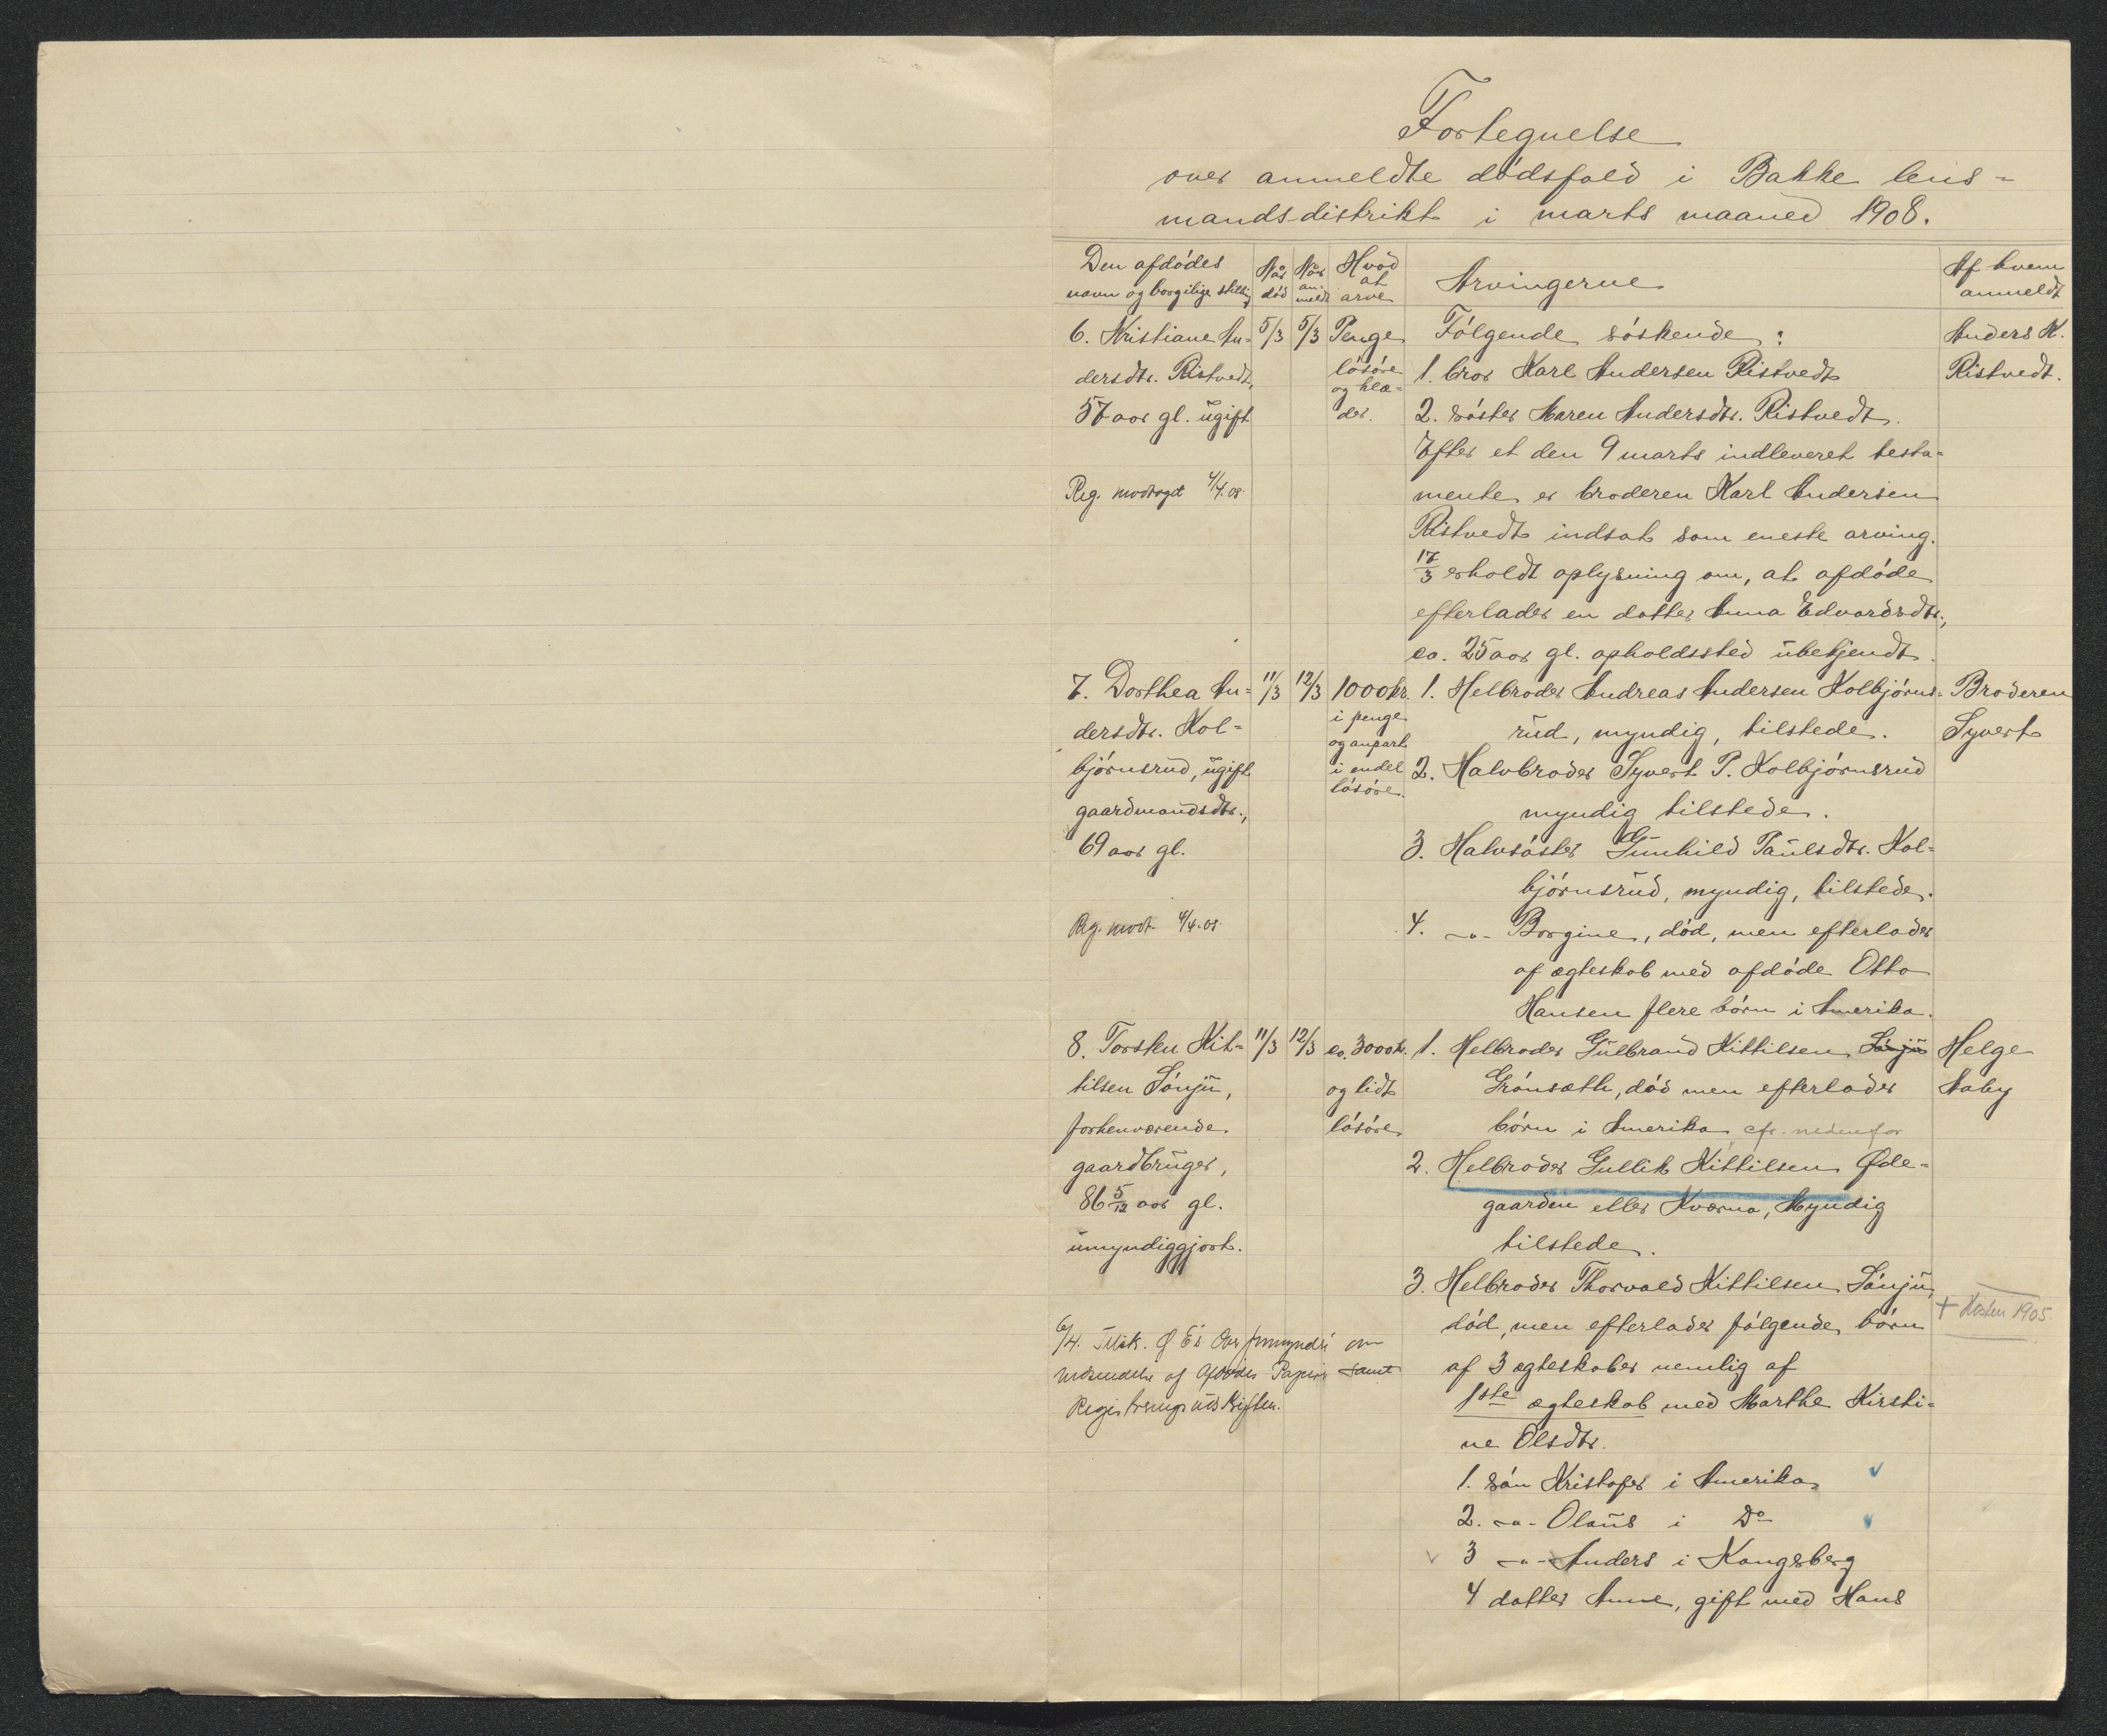 Fortegnelse
over anmeldte dödsfald i Bakke lens-
mandsdistrikt i marts maaned 1908.
Den afdödes
navn og borgilige stilling
Når
död
Når
an-
meldt
Hvad
at
arve
Arvingerne
Af hvem
anmeldt
6. Kristiane An-
dersdtr. Ristvedt,
57 aar gl. ugift
5/3
5/3
Penge
lösöre
og klæ-
der.
Fölgende söskende:
1. bror Karl Andersen Ristvedt
2. söster Maren Andersdtr. Ristvedt.
Efter et den 9 marts indleveret testa-
mente er broderen Karl Andersen
Ristvedt indsat som eneste arving.
17/3 erholdt oplysning om, at afdöde
efterlader en datter Anna Edvardsdtr.,
ca. 25 aar gl. opholdssted ubekjendt.
Anders K.
Ristvedt.
Reg. modtaget 4/4.08.
7. Dorthea An-
dersdtr. Kol-
björnsrud, ugift
gaardmandsdtr.,
69 aar gl.
11/3
12/3
1000 kr.
i penge
og anpart
i endel
lösöre.
1. Helbroder Andreas Andersen Kolbjörns-
rud, myndig, tilstede.
2. Halvbroder Syvert P. Kolbjörnsrud
myndig tilstede.
3. Halvsöster Gunhild Paulsdtr. Kol-
björnsrud, myndig, tilstede.
4. -"- Borgine, död, men efterlader
af ægteskab med afdöde Otto
Hansen flere börn i Amerika.
Broderen
Syvert
Reg. modt. 4/4.08.
8. Torsten Kit-
tilsen Sönju,
forhenværende
gaardbruger,
86 5/12 aar gl.
umyndiggjort.
11/3
12/3
ca. 3000 kr.
og lidt
lösöre
1. Helbroder Gulbrand Kittilsen Sönju
Grönsæth, död men efterlader
börn i Amerika cfr. nedenfor
2. Helbroder Gullik Kittilsen Øde-
gaarden eller Kværna, Myndig
tilstede.
3. Helbroder Thorvald Kittilsen Sönju,
död, men efterlader fölgende börn
af 3 ægteskaber nemlig af
1ste ægteskab med Marthe Kirsti-
ne Olsdtr.
1. sön Kristofer i Amerika
2. -"- Olaus i Do
3 -"- Anders i Kongsberg
4 datter Anne, gift med Hans
Helge
Aaby
+ Høsten 1905.
6/4. Ø Ex Overformynderi om
af Afdødes Papirer samt
Registreringsudskriften.